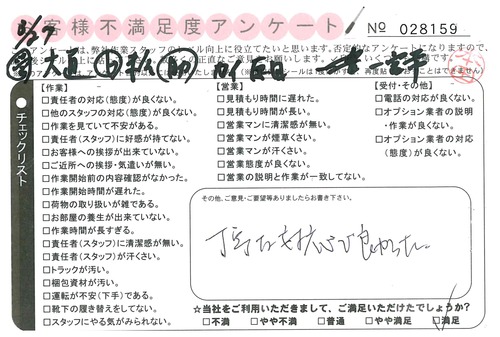 お客様不満足度アンケート
No 028159
【作業】
□責任者の対応（態度）が良くない。
□他のスタッフの対応（態度）が良くない。
□作業を見ていて不安がある。
□責任者（スタッフ）に好感が持てない。
□お客様への挨拶が出来ていない。
□ご近所への挨拶・気遣いが無い。
□作業開始前の内容確認がなかった。
□作業開始時間が遅れた。
□荷物の取り扱いが雑である。
□お部屋の養生が出来ていない。
□作業時間が長すぎる。
□責任者（スタッフ）に清潔感が無い。
□責任者（スタッフ）が汗くさい。
□トラックが汚い。
□梱包資材が汚い。
□運転が不安（下手）である。
□靴下の履き替えをしてない。
□スタッフにやる気がみられない。
【営業】
□見積もり時間に遅れた。
□見積もり時間が長い。
□営業マンに清潔感が無い。
□営業マンが煙草くさい。
□営業マンが汗くさい。
□営業態度が良くない。
□営業の説明と作業が一致してない。
【受付・その他】
□電話の対応が良くない。
□オプション業者の説明
・作業が良くない。
□オプション業者の対応
（態度）が良くない。
●チェックリスト
その他、ご意見・ご要望等ありましたらお書き下さい。
丁寧な対応で良かった。
☆当社をご利用いただきまして、ご満足いただけたでしょうか？
□不満 □やや不満 □普通 □やや満足 □満足